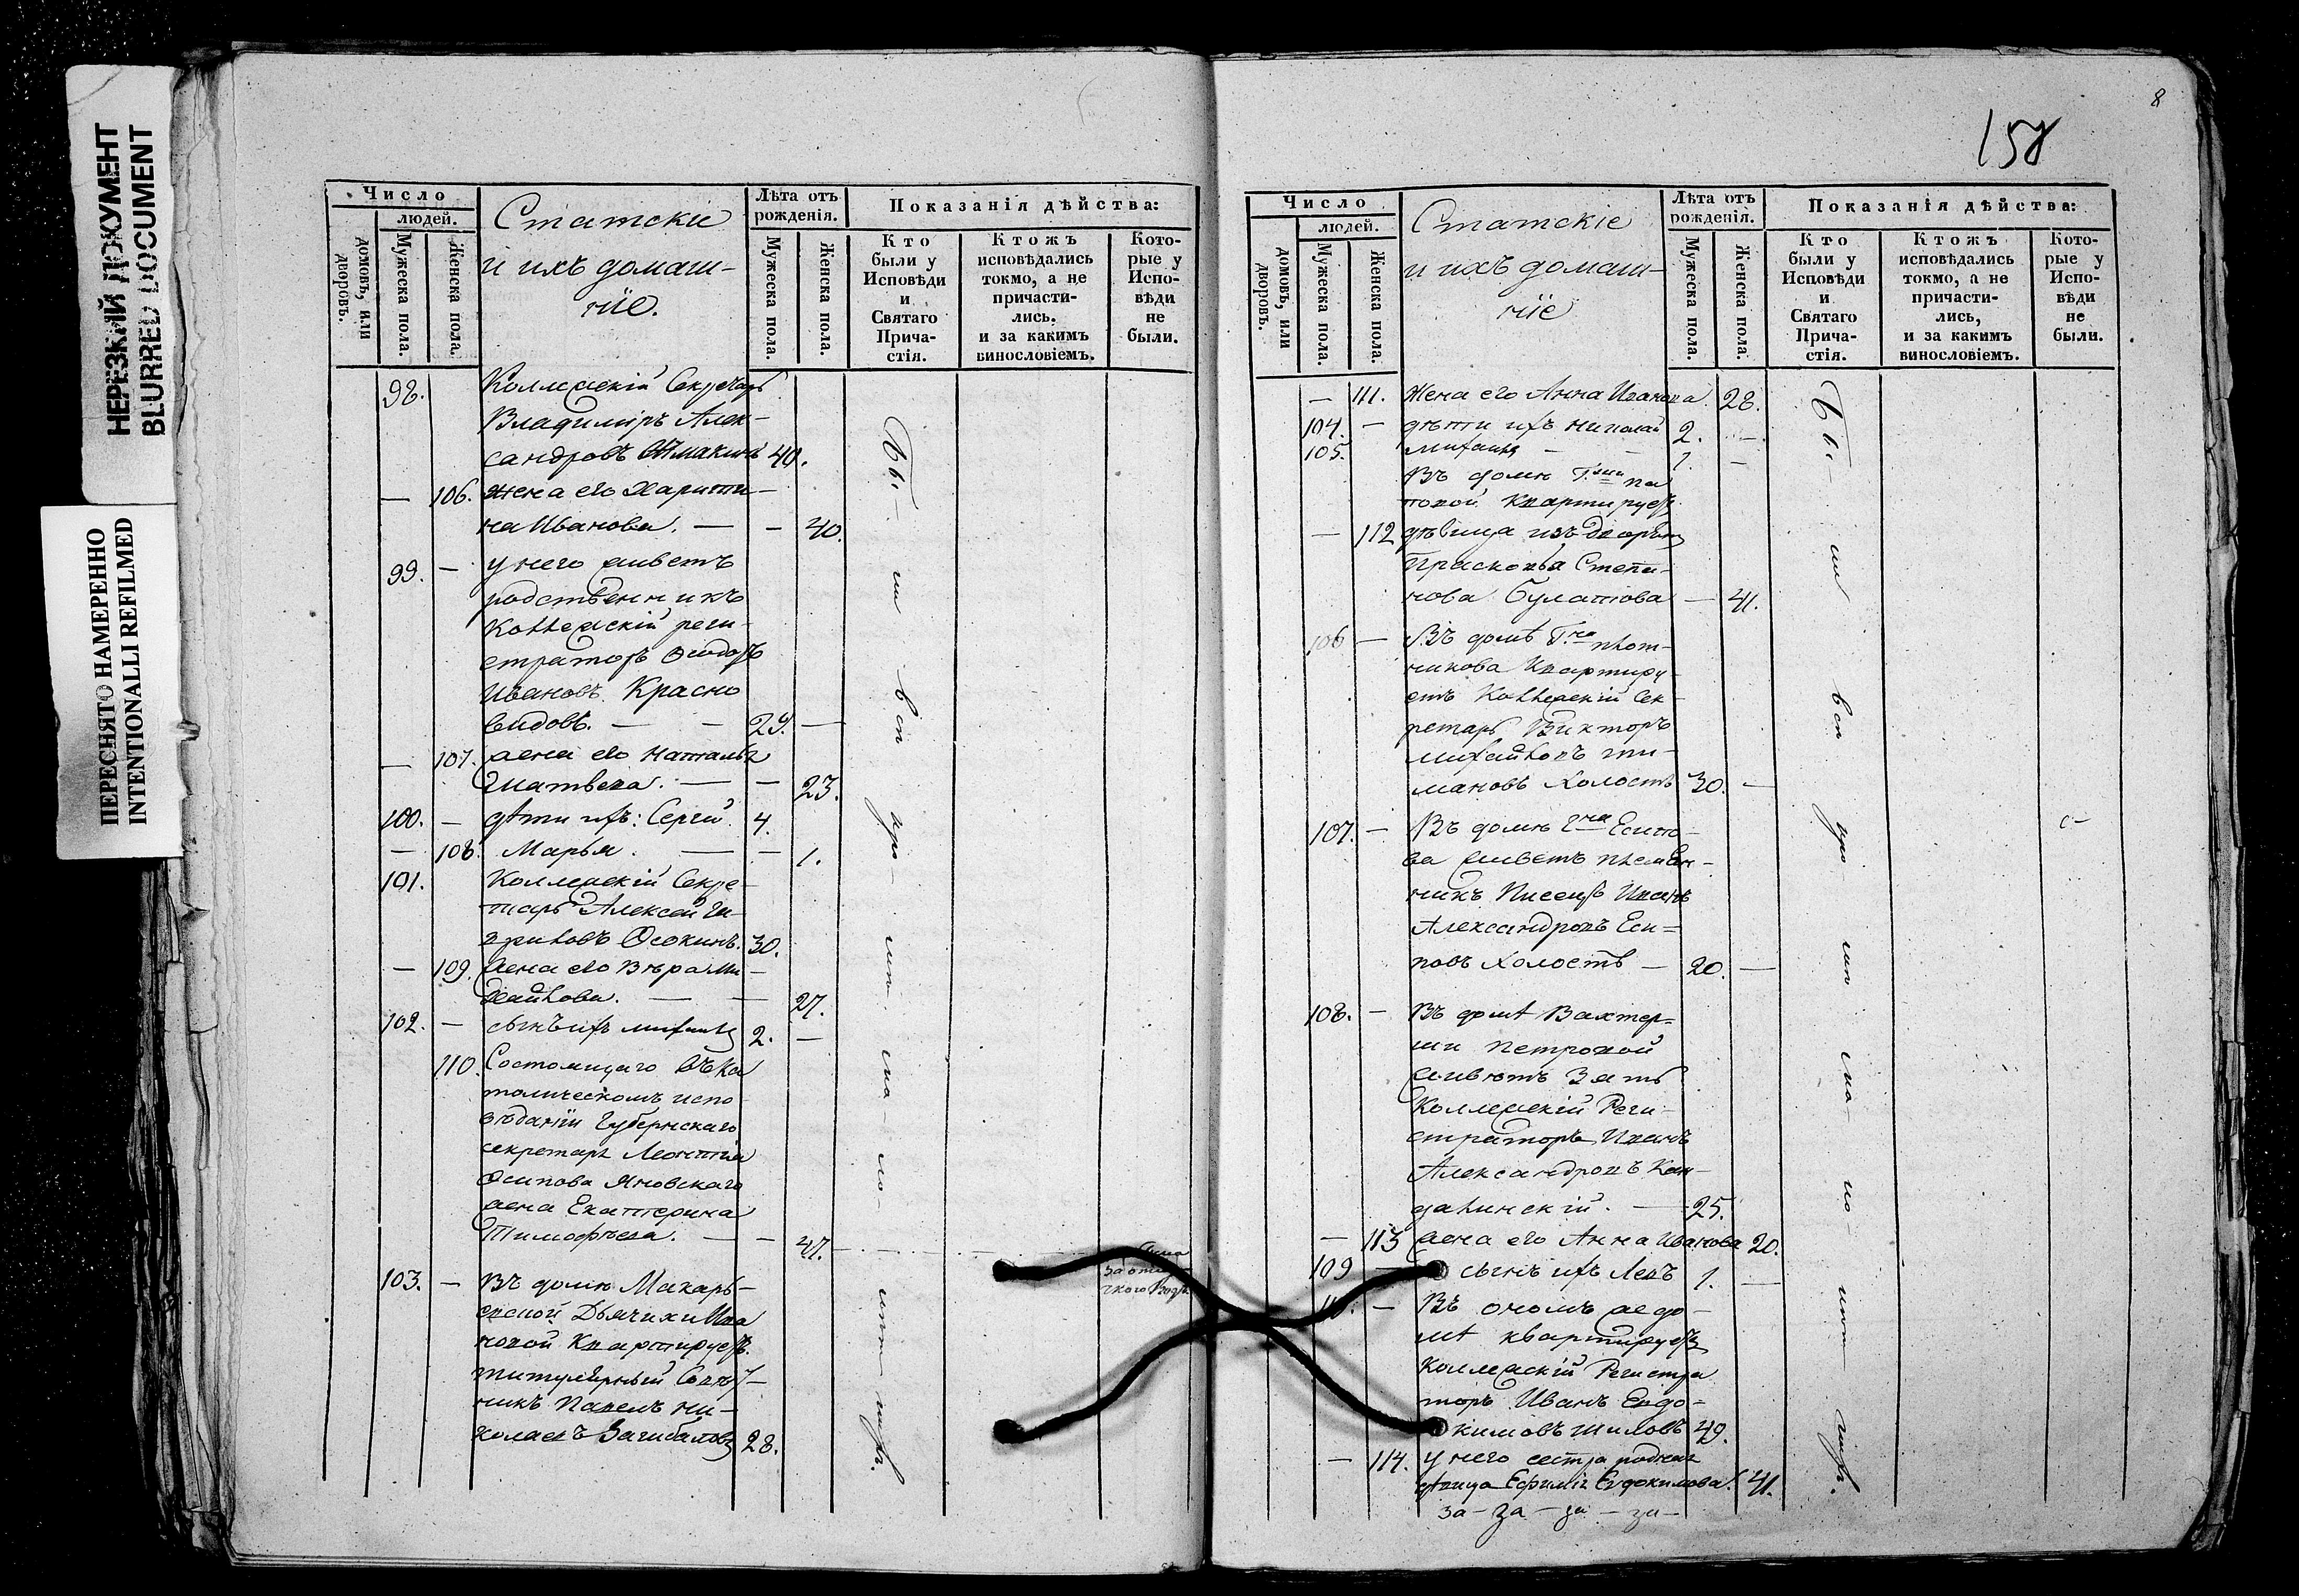 НЕРЕЗКИЙ ДОКУМЕНТ
BLURRED DOCUMENT
ПЕРЕСНЯТО НАМЕРЕННО
INTENTIONALLI REFILMED
Число
людей.
домовъ, или дворовъ.
Мужеска пола.
Женска пола.
Статскіе
и ихъ домаш-
ніе.
Лѣта отъ рожденія.
Мужеска пола.
Женска пола.
Показанія дѣйства:
Кто были у Исповѣди и Святаго Прича-стія.
Ктожъ исповѣдались токмо, а не причасти-лись. и за какимъ винословіемъ.
Кото-рые у Испо-вѣди не были.
98. Коллежскій Секретарь
Владиміръ Алек-
сандровъ 40.
— 106. жена его Харити-
на Иванова. — — 40.
99. — у него живетъ
родственникъ
Коллежскій реги-
страторъ Ѳеодоръ
Ивановъ Красно
видовъ. — — 29. —
— 107. жена его Наталья
Матвева. — — 23.
100. — дѣти ихъ: Сергій 4.
— 108. Марья. — — 1.
101. Коллежскій Секре-
тарь Алексей Га-
вриловъ Осокинъ. 30.
— 109. жена его Вѣра Ми-
хайлова. — — 27.
102. — сынъ ихъ Михаилъ 2. —
110. Состоящаго въ Ка
толическомъ испо
вѣданіи Губернскаго
секретаря Леонтія
Осипова Яновскаго
жена Екатерина
Тимофѣева. — — 47.
103. — Въ домѣ Макарь-
евской Дьячихи Ива
новой Квартируетъ
титулярный Совѣт-
никъ Павелъ Ни-
колаевъ Загибаловъ 28.
Бы- ли всп при- ... ...
8
158
Число
людей.
домовъ, или дворовъ.
Мужеска пола.
Женска пола.
Статскіе
и ихъ домаш-
ніе
Лѣта отъ рожденія.
Мужеска пола.
Женска пола.
Показанія дѣйства:
Кто были у Исповѣди и Святаго Прича-стія.
Ктожъ исповѣдались токмо, а не причасти-лись, и за какимъ винословіемъ.
Кото-рые у Испо-вѣди не были.
— 111. Жена его Анна Иванова. 28.
104. — дѣти ихъ Николай 2. —
105. Михаилъ — — 1. —
Въ домѣ
Квартируетъ
— 112 дѣвица изъ дворянъ
Прасковья Степа-
нова Булатова — 41.
106 — Въ домѣ Г.на Плот-
никова Квартиру-
етъ Коллежскій Сек-
ретарь Викторъ
Михайловъ Ти-
мановъ Холостъ 30. —
107. — Въ домѣ Г.на Есипо-
ва живетъ племян-
никъ Писецъ Иванъ
Александровъ Еси-
повъ Холостъ — 20. —
108. — Въ домѣ Вахтер-
ши Петровой
живетъ Зять
Коллежскій Реги-
страторъ Иванъ
Александровъ Кан-
далинскій. — 25.
— 113 жена его Анна Иванова 20.
109 — сынъ ихъ Левъ 1. —
110. — Въ ономъ же до-
мѣ квартируетъ
Коллежскій Регистра
торъ Иванъ Евдо-
кимовъ Шиловъ 49.
— 114. у него сестра родная
дѣвица Ефимія Евдокимова. 41.
за — за — за — за —